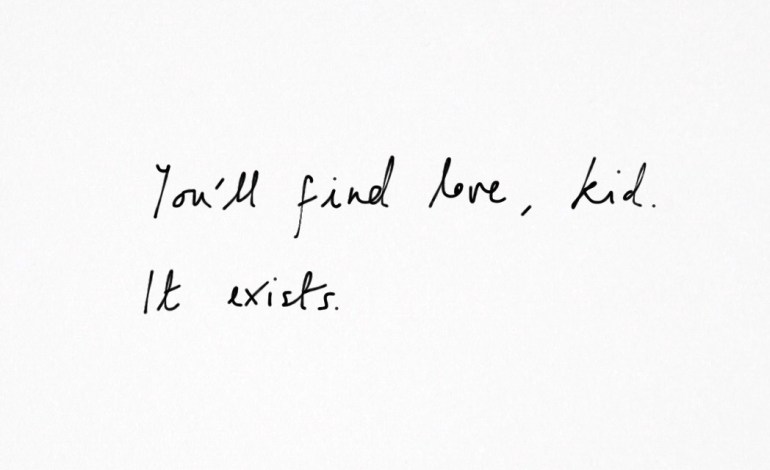 You'll find love, kid.
It exists.